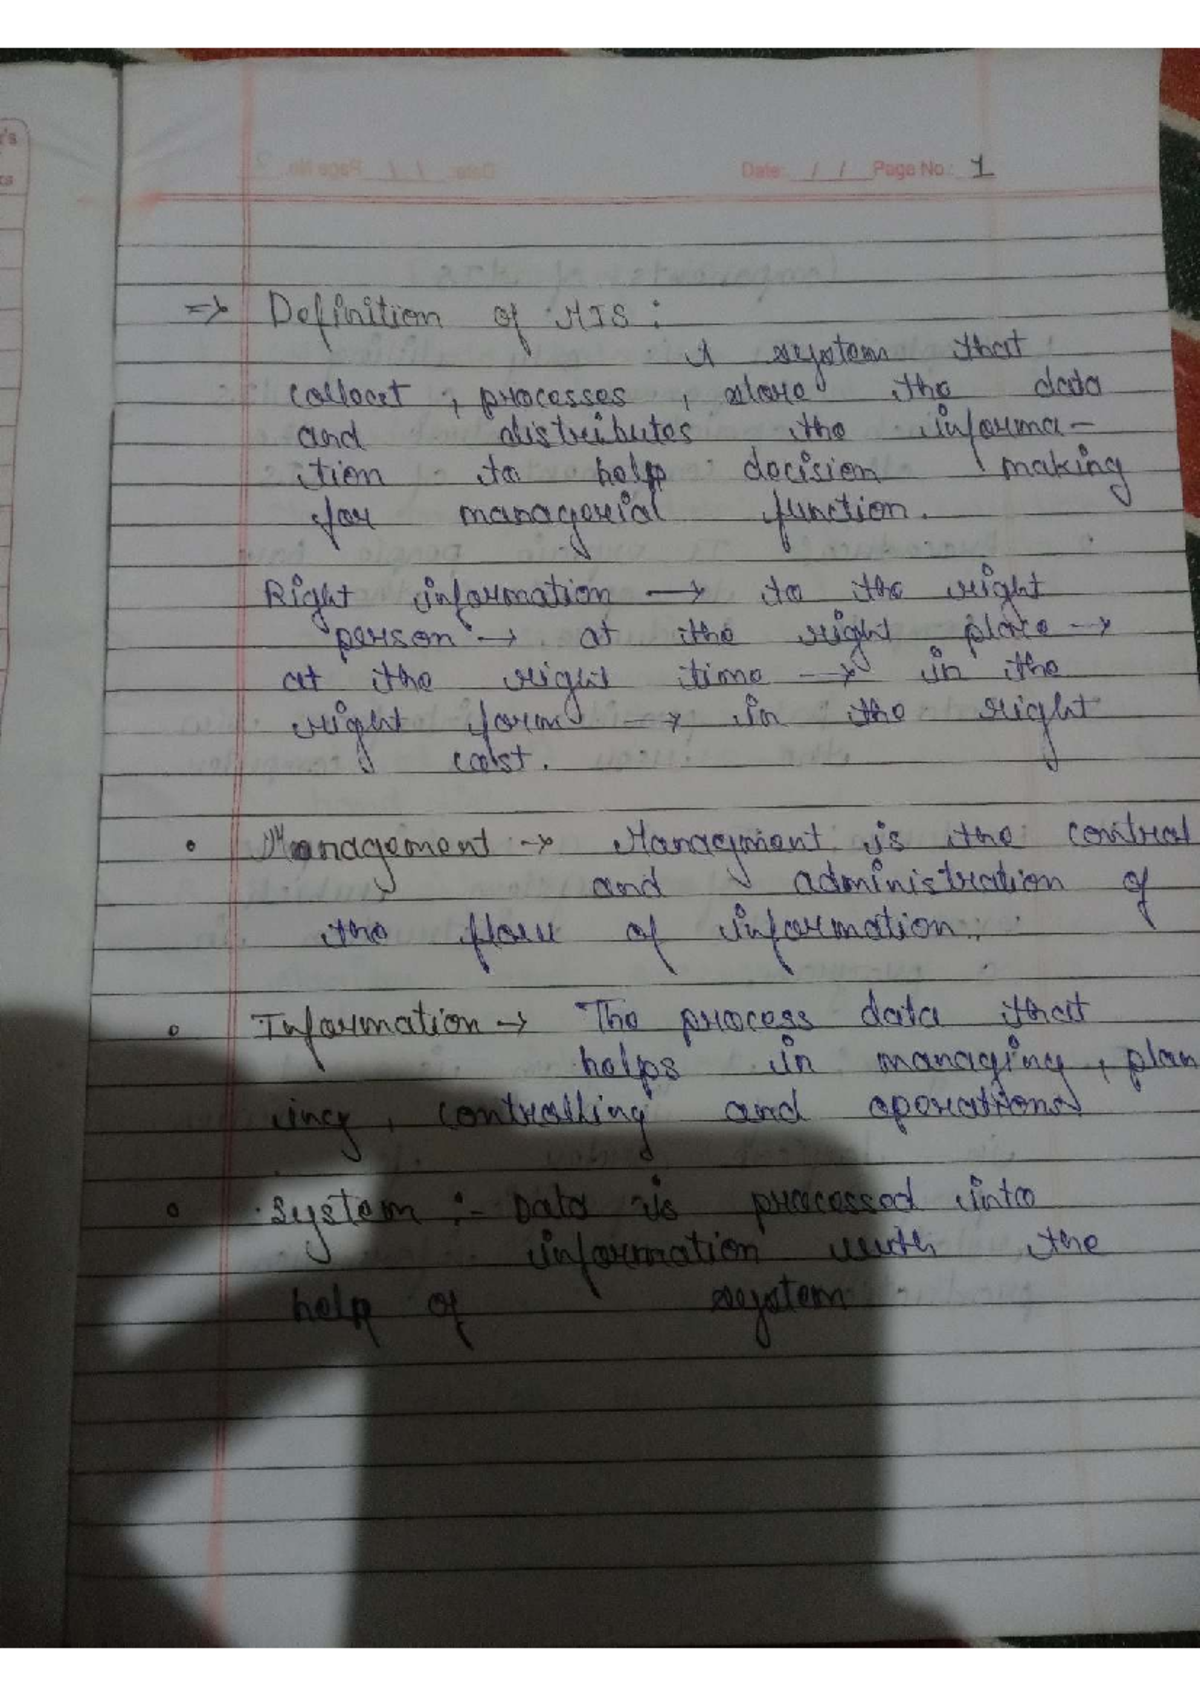 Date: / / Page No.: 1
=> Definition of MIS :
A system that
collocet, processes, store the data
and distributes the informa-
tion to help decision making
for managerial function.
Right information → to the right
person → at the right place →
at the right time → in the
right form → in the right
cost.
• Management → Managment is the control
and administration of
the flow of information.
• Information → The process data that
helps in managing, plan
ing, controlling and operations
• System :- Data is processed into
information with the
help of system